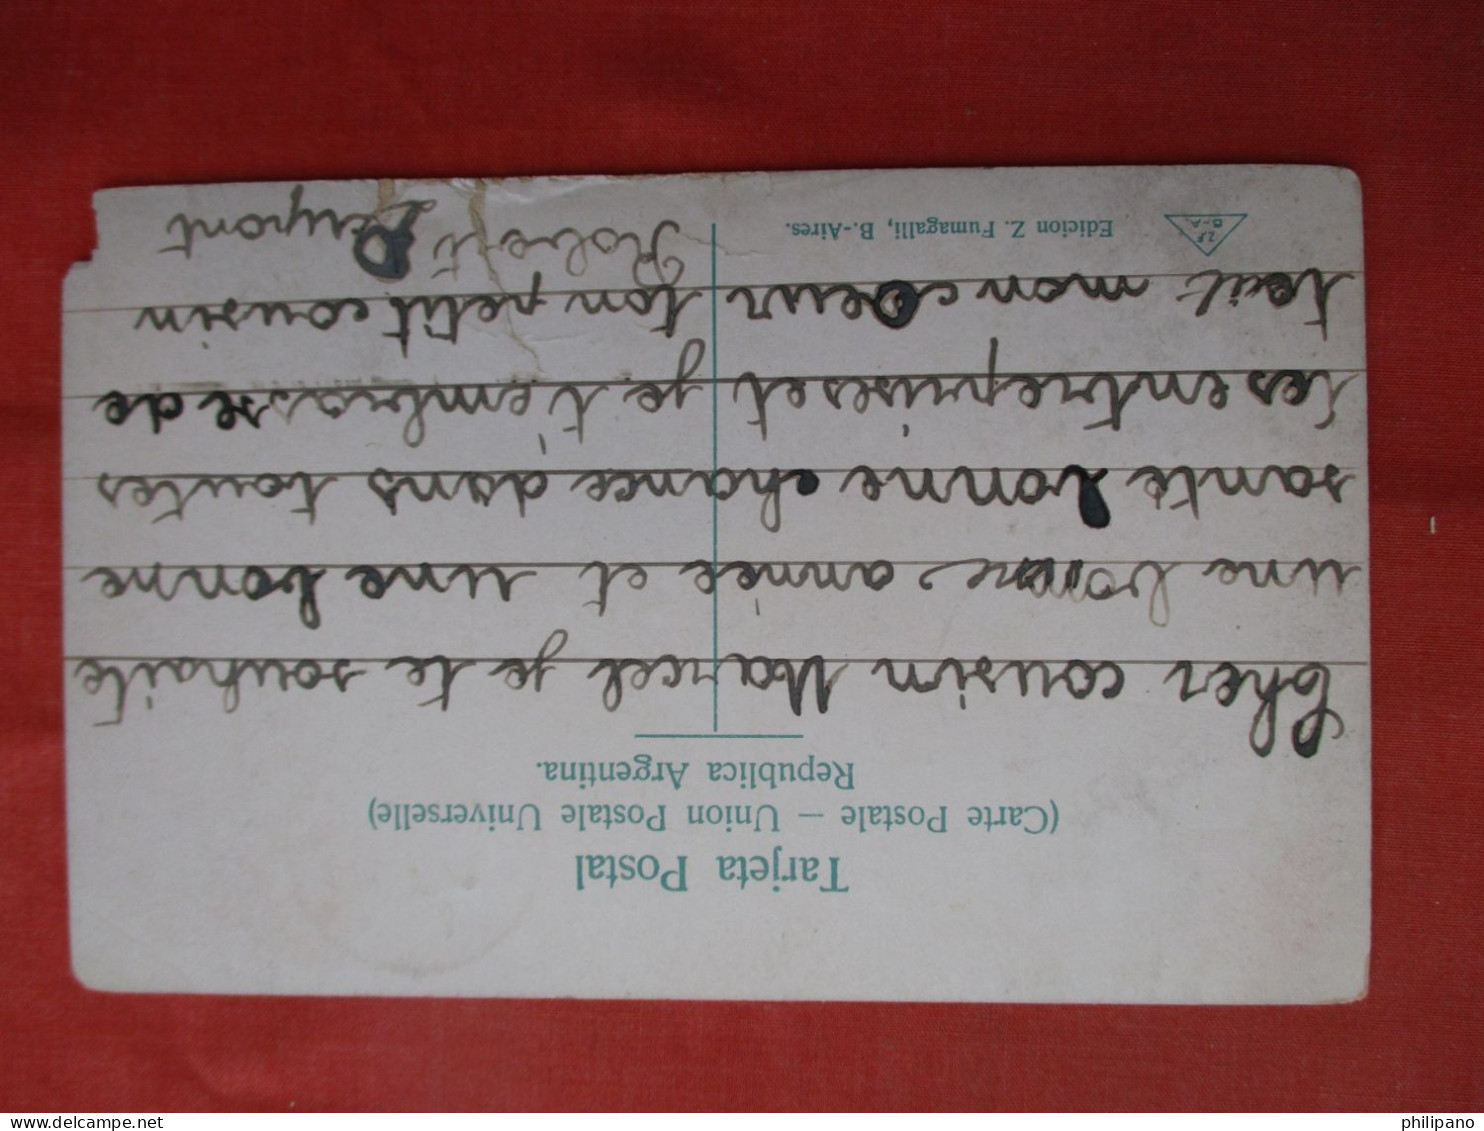 Tarjeta Postal
(Carte Postale — Union Postale Universelle)
Republica Argentina.
Cher cousin Marcel je te souhaite
une bonne année et une bonne
santé bonne chance dans toutes
tes entreprises et je t'embrasse de
tout mon cœur ton petit cousin
Robert
Edicion Z. Fumagalli, B.-Aires.
Z F
B-A.
philipano